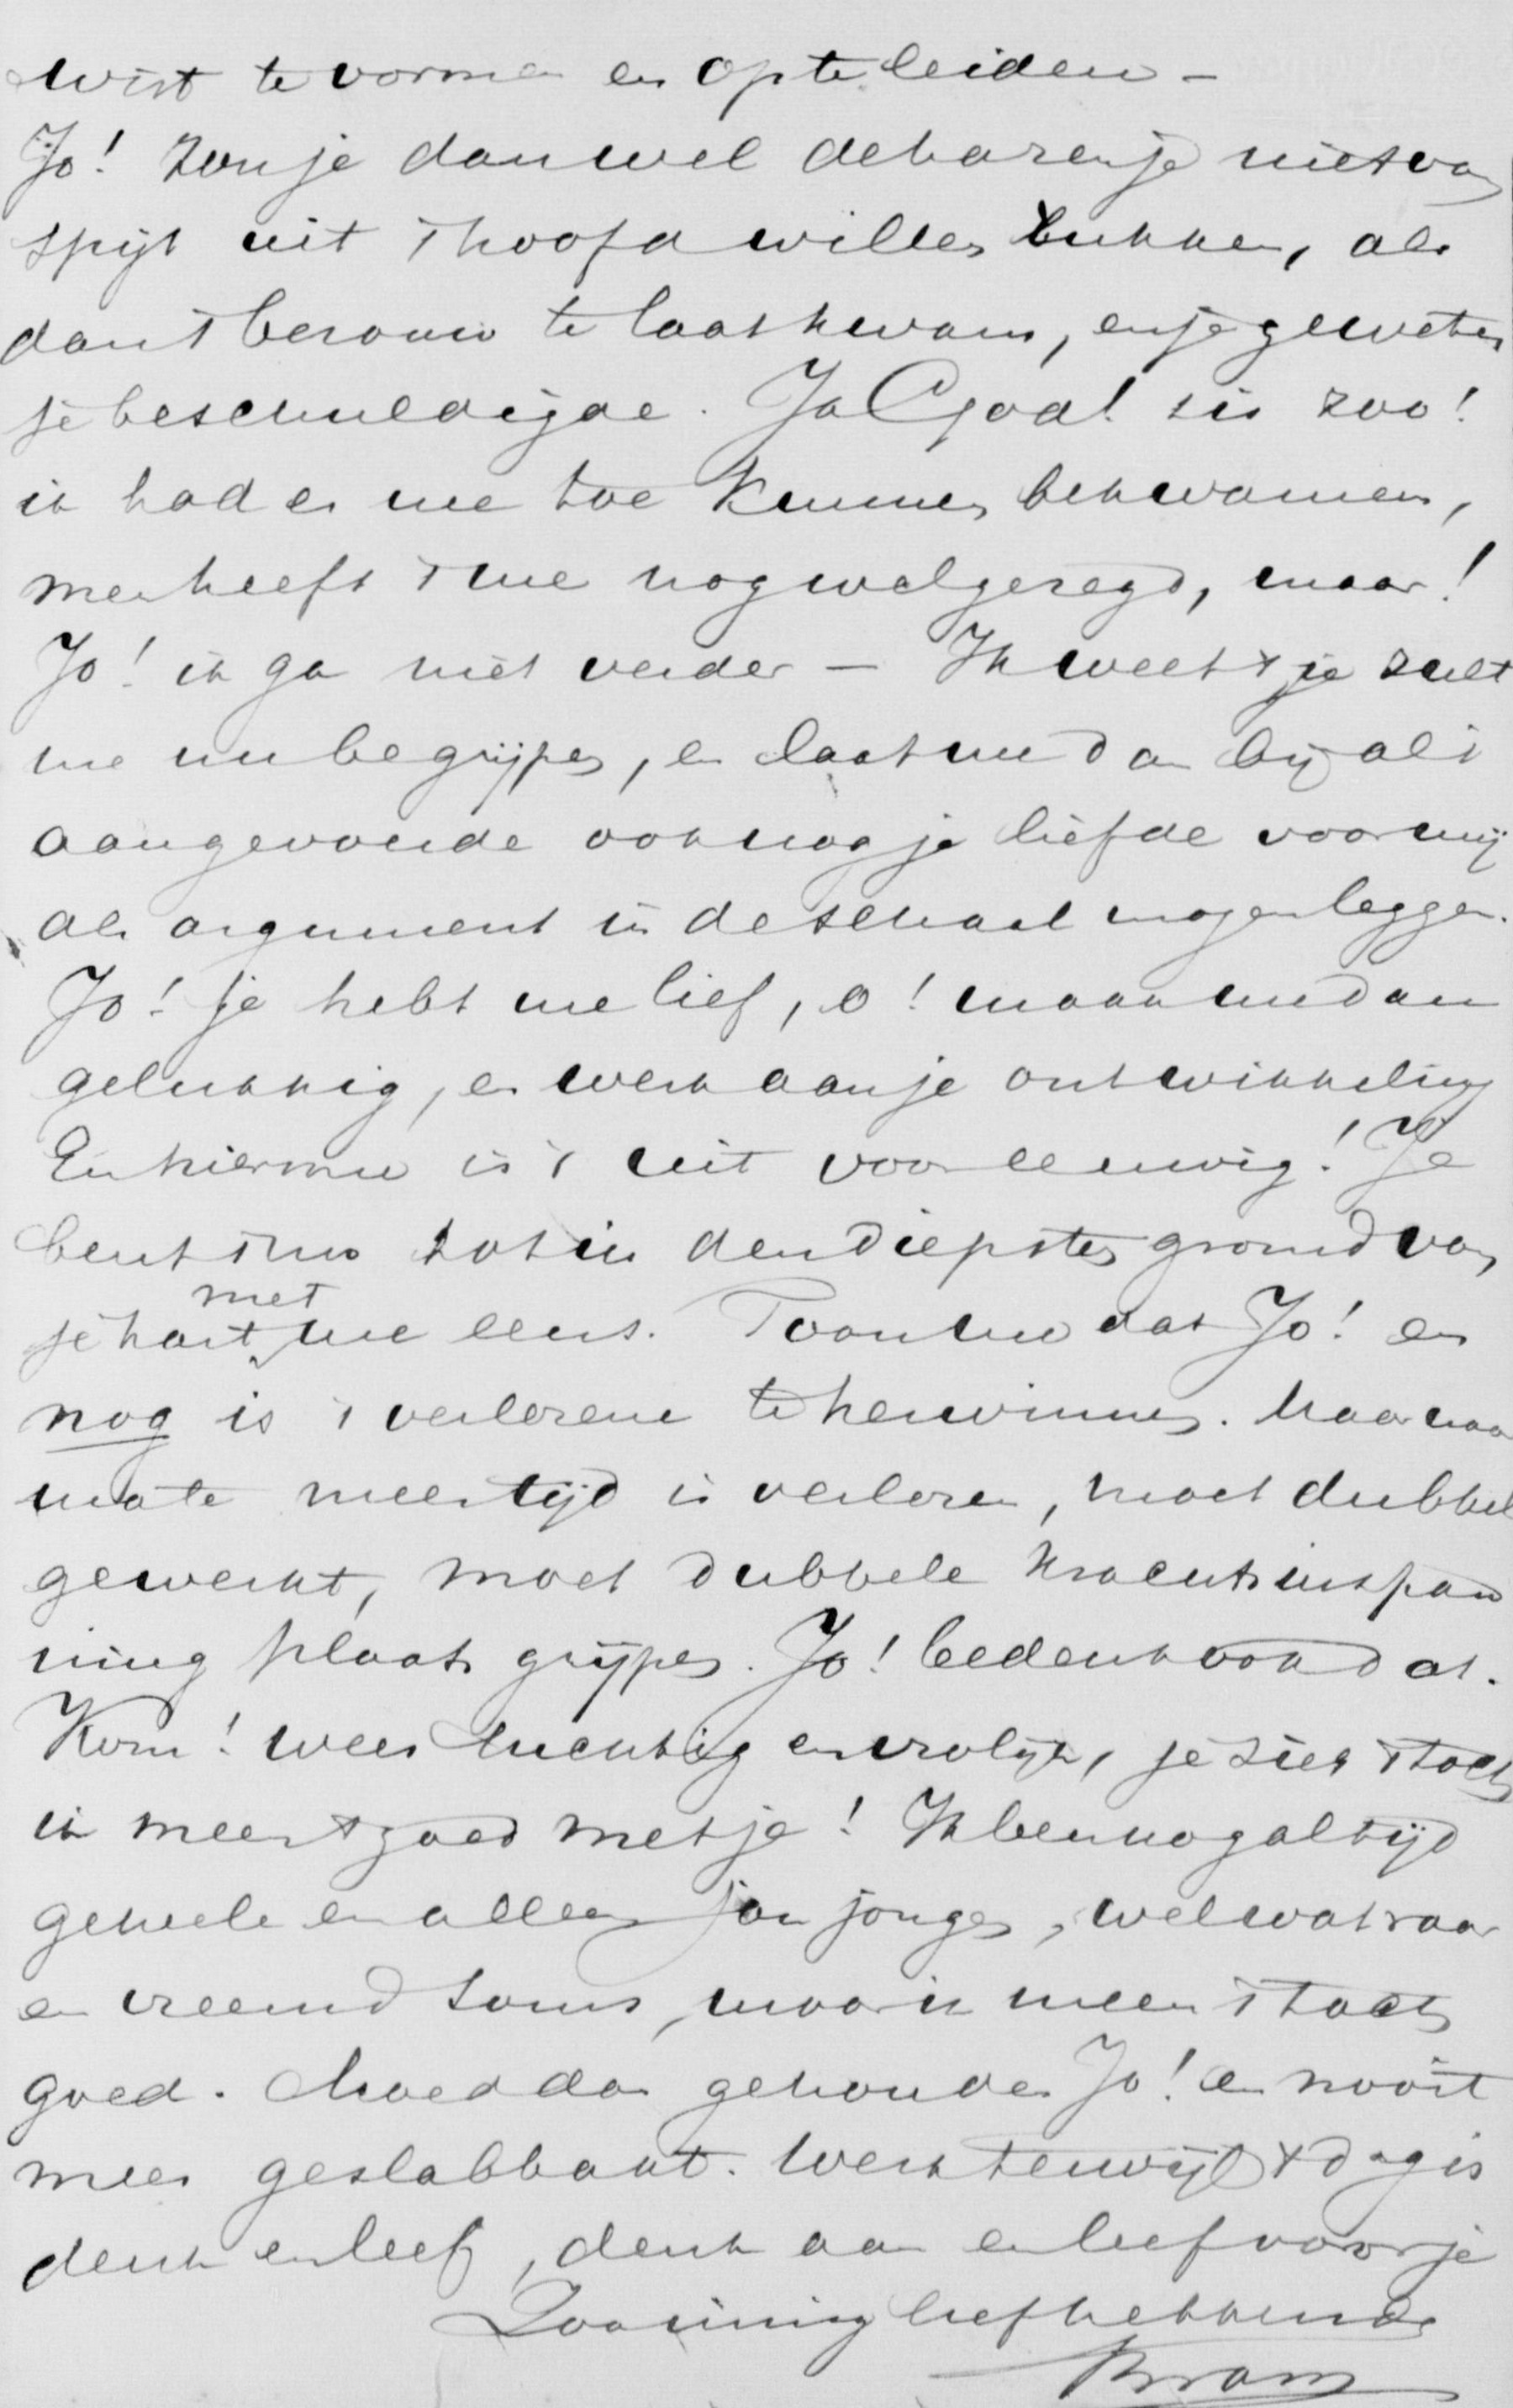 wist te vormen en op te leiden –
Jo! zou je dan wel de haren je niet van
spijt uit 't hoofd willen rukken, als
dan 't berouw te laat kwam, en je geweten
je beschuldigde. Ja God! 't is zoo!
ik had er me toe kunnen bekwamen,
men heeft 't me nog wel gezegd, maar!
Jo! ik ga niet verder – Ik weet 't je zult
me nu begrijpen, en laat me dan bij al 't
aangevoerde ook nog je liefde voor mij
als argument in de schaal mogen leggen.
Jo! je hebt me lief, o! maak me dan
gelukkig, en werk aan je ontwikkeling
En hiermee is 't uit voor eeuwig! Je
bent 't nu tot in den diepsten grond van
je hart met me eens. Toon me dat Jo! en
nog is 't verlorene te herwinnen. Maar naar
mate meer tijd is verloren, moet dubbel
gewerkt, moet dubbele krachtsinspan
ning plaats grijpen. Jo! bedenk ook dat.
Kom! wees luchtig en vrolijk, je ziet 't toch
ik meen 't goed met je! Ik ben nog altijd
geheel en alleen jou jongen, wel wat raar
en vreemd soms, maar ik meen 't toch
goed. Moed dan gehouden Jo! en nooit
meer geslabbakt. Werk terwijl 't dag is
denk en leef, denk aan en leef voor je
Zoo innig liefhebbende
Bram